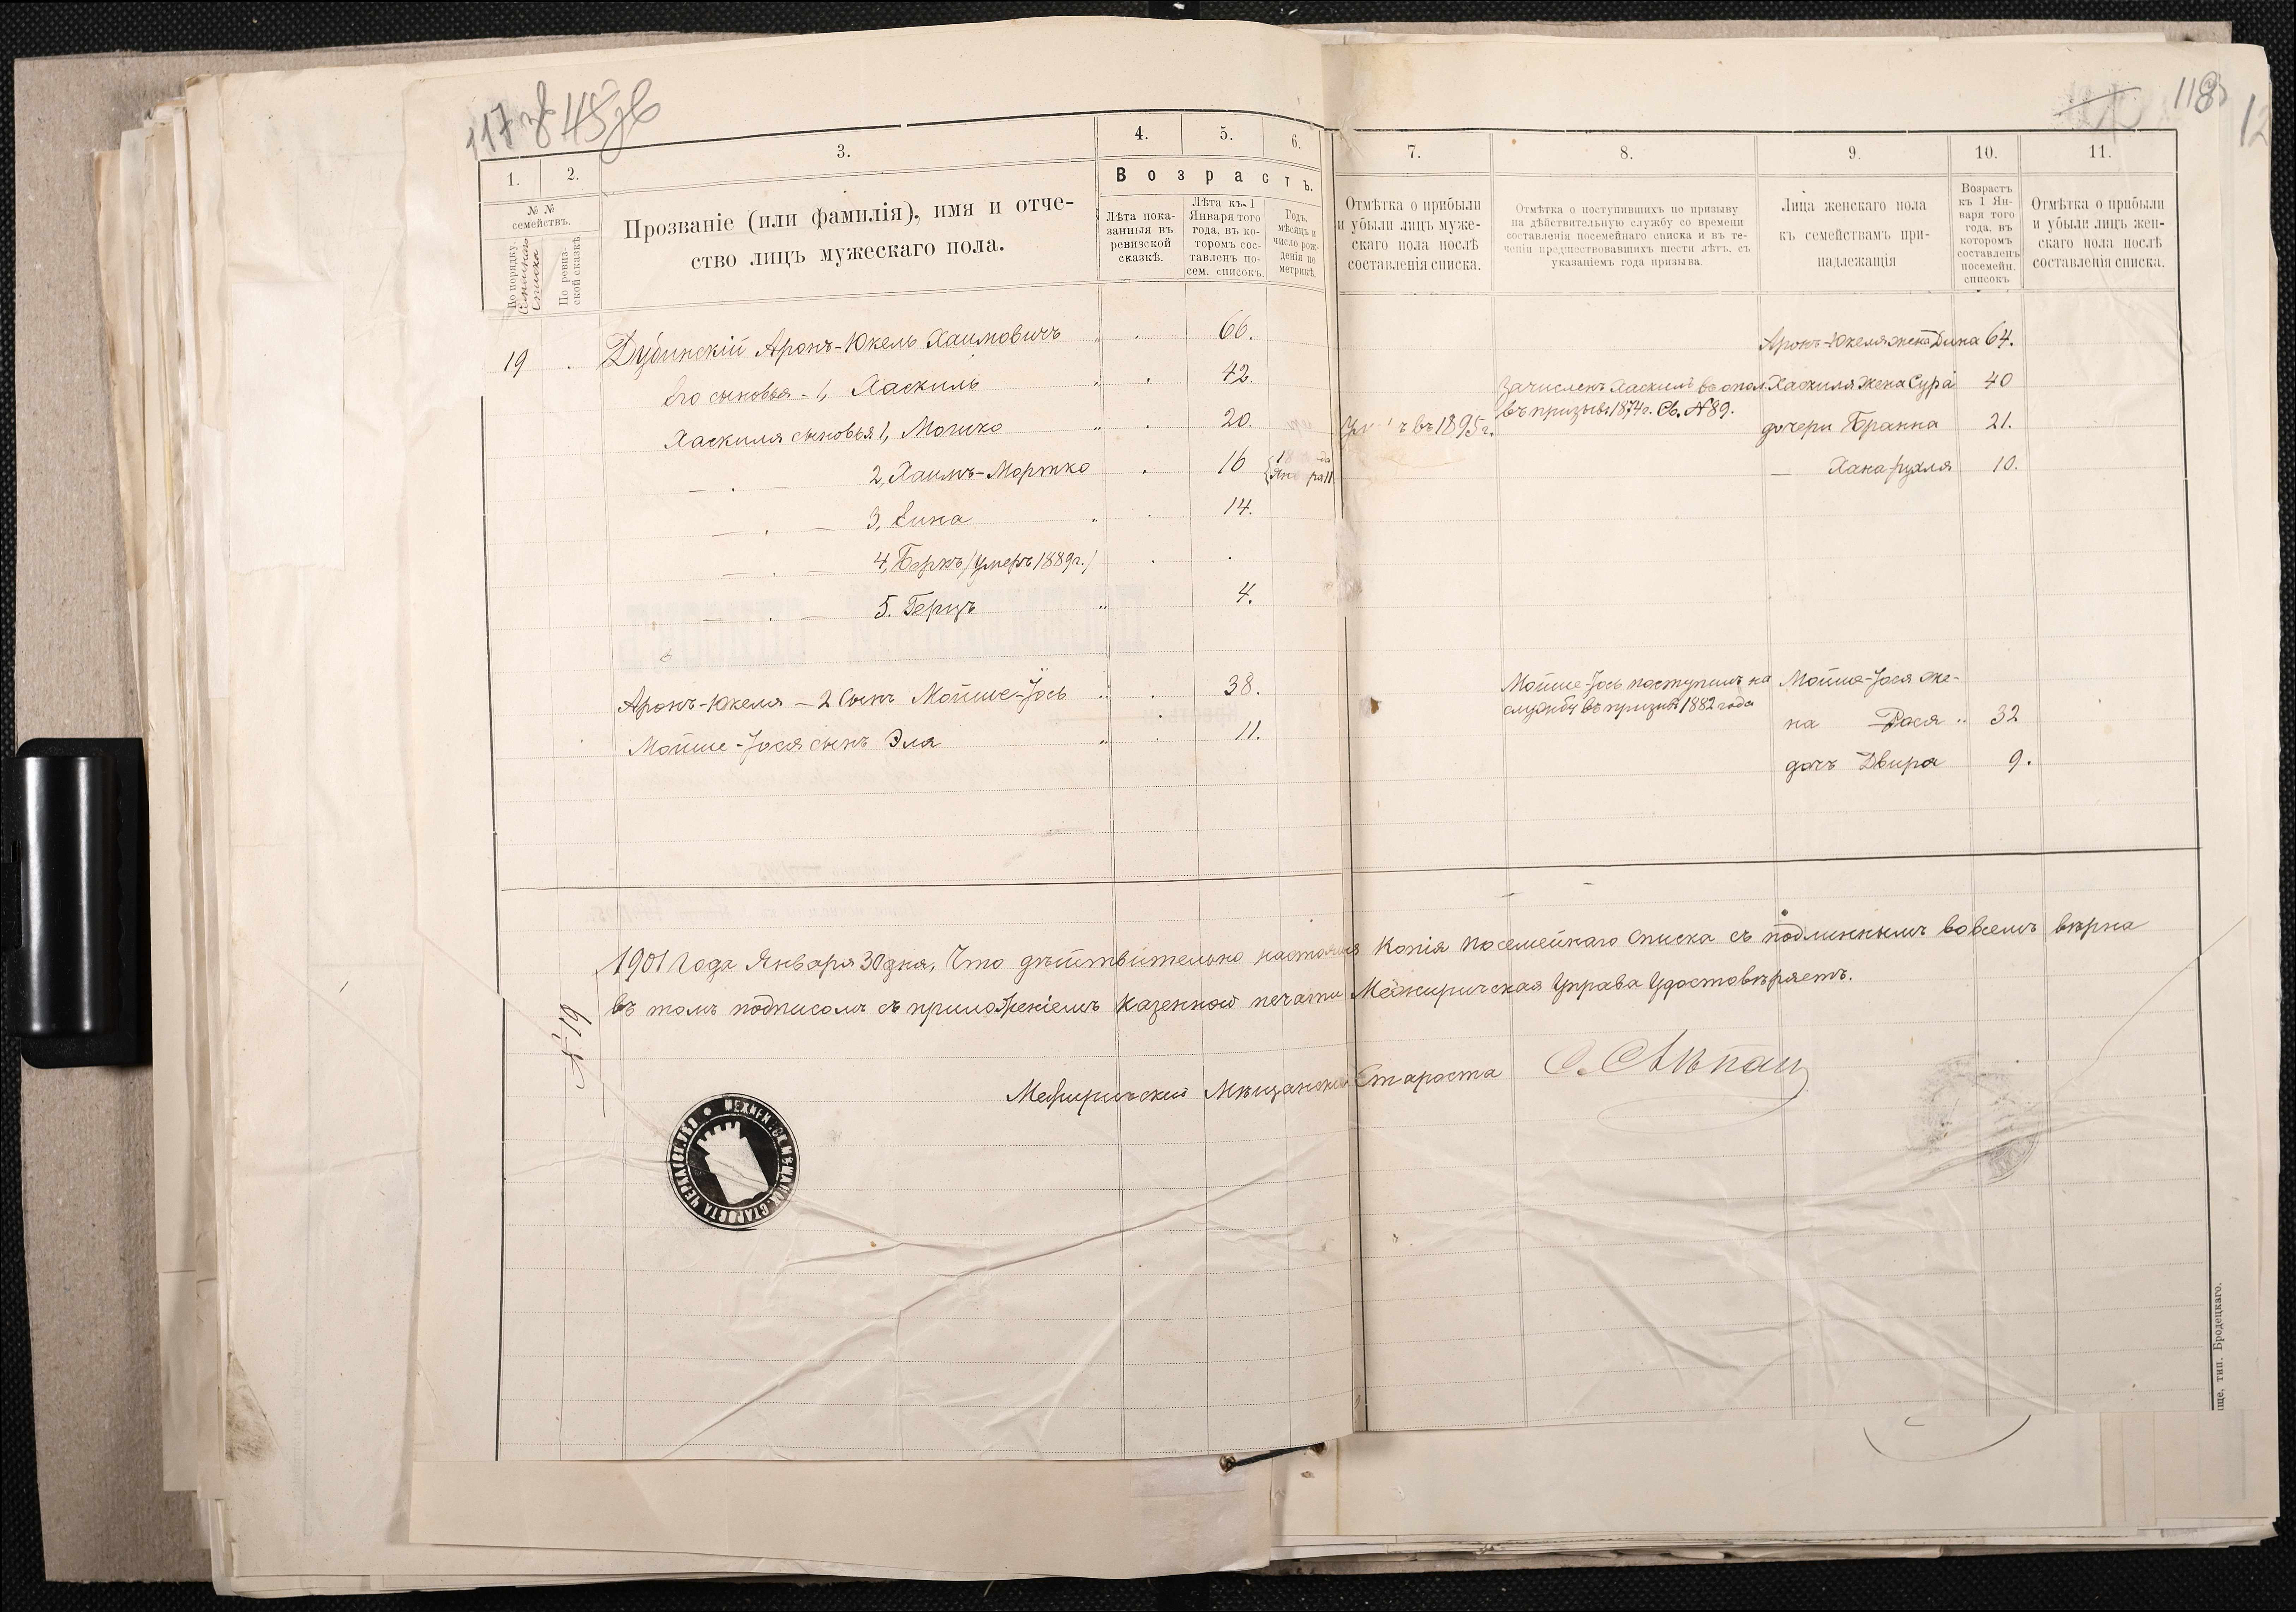 117 об 45 об
118
12
1.
2.
3.
4.
5.
6.
7.
8.
9.
10.
11.
№ №
семействъ.
По порядку
списка
По ревиз-
ской сказкѣ.
Прозваніе (или фамилія), имя и отче-
ство лицъ мужескаго пола.
Возрастъ.
Лѣта пока-
занныя въ
ревизской
сказкѣ.
Лѣта къ 1
Января того
года, въ ко-
торомъ сос-
тавленъ по-
сем. списокъ.
Годъ,
мѣсяцъ и
число рож-
денія по
метрикѣ.
Отмѣтка о прибыли
и убыли лицъ муже-
скаго пола послѣ
составленія списка.
Отмѣтка о поступившихъ по призыву
на дѣйствительную службу со времени
составленія посемейнаго списка и въ те-
ченіи предшествовавшихъ шести лѣтъ, съ
указаніемъ года призыва.
Лица женскаго пола
къ семействамъ при-
надлежащія
Возрастъ
къ 1 Ян-
варя того
года, въ
которомъ
составленъ
посемейн.
списокъ
Отмѣтка о прибыли
и убыли лицъ жен-
скаго пола послѣ
составленія списка.
19 Дубинскій Аронъ-Юкель Хаимовичъ 66. Аронъ-Юкеля жена Дина 64.
Его сыновья - 1, Хаскиль 42. Зачисленъ Хаскиль въ опол. Хаскиля жена Сура 40
въ призывъ 1874г. Св. №89.
Хаскиля сыновья 1, Мошко 20. въ 1895г. дочери Бранна 21.
— . — 2, Хаимъ-Мортко 16 — Хана рухля 10.
— . — 3, Сина 14.
— . — 4, Беркъ /умеръ 1889г./
— . — 5. Герцъ 4.
Аронъ-Юкеля — 2 Сынъ Мойше-Іось 38. Мойше-Іось поступилъ на Мойше-Іося же-
службу въ призывъ 1882 года на Рося 32
Мойше-Іося сынъ Эля 11.
дочь Двира 9.
1901 года Января 30 дня, Что дѣйствительно настоящая Копія посемейнаго списка съ подлиннымъ во всемъ вѣрна
въ томъ подписомъ съ приложеніемъ казенной печати Межиричская Управа Удостовѣряетъ.
№ 19
Межиричскій Мѣщанскій Староста
тип. Бродецкаго.